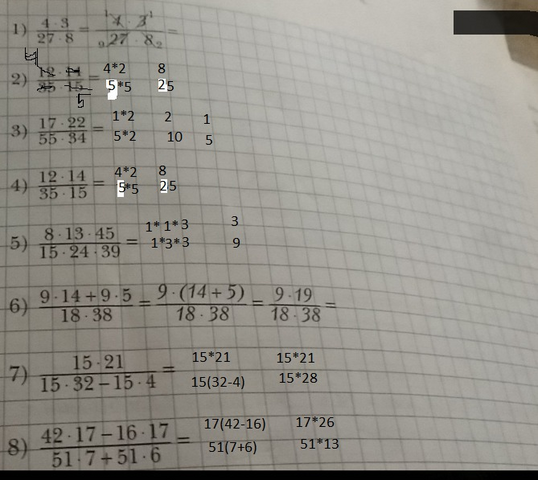 1) 4 · 3 / 27 · 8 = 1 4 · 3 1 / 9 27 · 8 2 =
4
2) 12 · 14 / 35 · 15 = 4*2 / 5*5 8 / 25
5
3) 17 · 22 / 55 · 34 = 1*2 / 5*2 2 / 10 1 / 5
4) 12 · 14 / 35 · 15 = 4*2 / 5*5 8 / 25
5) 8 · 13 · 45 / 15 · 24 · 39 = 1*1*3 / 1*3*3 3 / 9
6) 9 · 14 + 9 · 5 / 18 · 38 = 9 · (14 + 5) / 18 · 38 = 9 · 19 / 18 · 38 =
7) 15 · 21 / 15 · 32 – 15 · 4 = 15*21 / 15(32-4) 15*21 / 15*28
8) 42 · 17 – 16 · 17 / 51 · 7 + 51 · 6 = 17(42-16) / 51(7+6) 17*26 / 51*13